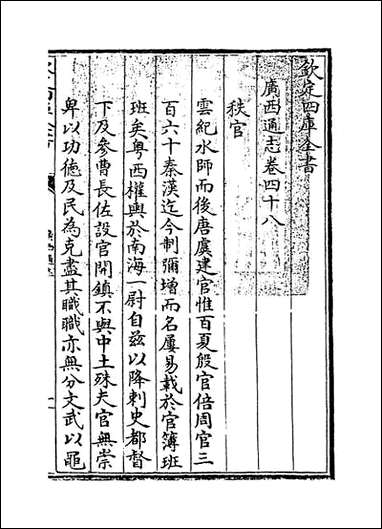 欽定四庫全書
廣西通志卷四十八
秩官
雲紀水師而後唐虞建官惟百夏殷官倍周官三
百六十秦漢迄今制彌增而名屢易載於官簿班
班矣粤西權輿於南海一尉自茲以降刺史都督
下及參曹長佐設官開鎮不與中土殊夫官無崇
卑以功德及民為克盡其職職亦無分文武以黽